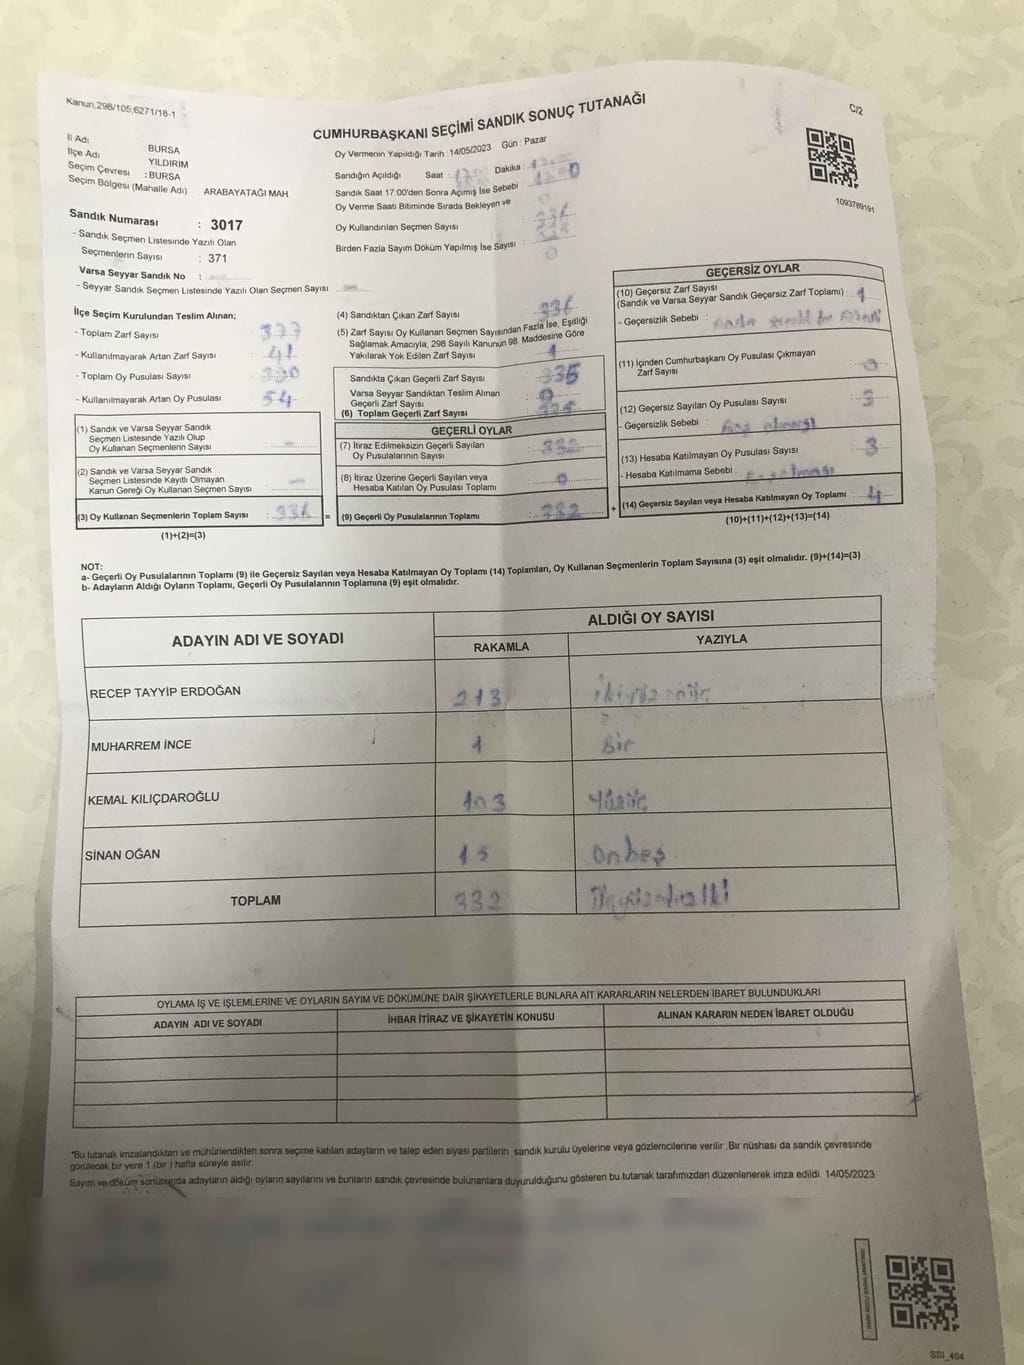 Kanun;298/105,6271/18-1
C/2
CUMHURBAŞKANI SEÇİMİ SANDIK SONUÇ TUTANAĞI
İl Adı : BURSA
İlçe Adı : YILDIRIM
Seçim Çevresi : BURSA
Seçim Bölgesi (Mahalle Adı) ARABAYATAĞI MAH.
Sandık Numarası : 3017
- Sandık Seçmen Listesinde Yazılı Olan
Seçmenlerin Sayısı : 371
Varsa Seyyar Sandık No :
- Seyyar Sandık Seçmen Listesinde Yazılı Olan Seçmen Sayısı
Oy Vermenin Yapıldığı Tarih : 14/05/2023 Gün : Pazar
Sandığın Açıldığı Saat : 17 Dakika :
Sandık Saat 17:00'den Sonra Açımış İse Sebebi :
Oy Verme Saati Bitiminde Sırada Bekleyen ve
Oy Kullandırılan Seçmen Sayısı :
Birden Fazla Sayım Döküm Yapılmış İse Sayısı : 0
1093789191
İlçe Seçim Kurulundan Teslim Alınan;
- Toplam Zarf Sayısı : 377
- Kullanılmayarak Artan Zarf Sayısı : 41
- Toplam Oy Pusulası Sayısı : 390
- Kullanılmayarak Artan Oy Pusulası : 54
(1) Sandık ve Varsa Seyyar Sandık
Seçmen Listesinde Yazılı Olup
Oy Kullanan Seçmenlerin Sayısı :
(2) Sandık ve Varsa Seyyar Sandık
Seçmen Listesinde Kayıtlı Olmayan
Kanun Gereği Oy Kullanan Seçmen Sayısı :
(3) Oy Kullanan Seçmenlerin Toplam Sayısı : 336
(1)+(2)=(3)
(4) Sandıktan Çıkan Zarf Sayısı : 336
(5) Zarf Sayısı Oy Kullanan Seçmen Sayısından Fazla İse, Eşitliği
Sağlamak Amacıyla, 298 Sayılı Kanunun 98. Maddesine Göre
Yakılarak Yok Edilen Zarf Sayısı : 1
Sandıkta Çıkan Geçerli Zarf Sayısı : 335
Varsa Seyyar Sandıktan Teslim Alınan
Geçerli Zarf Sayısı : 0
(6) Toplam Geçerli Zarf Sayısı : 335
GEÇERLİ OYLAR
(7) İtiraz Edilmeksizin Geçerli Sayılan
Oy Pusulalarının Sayısı : 332
(8) İtiraz Üzerine Geçerli Sayılan veya
Hesaba Katılan Oy Pusulası Toplamı : 0
= (9) Geçerli Oy Pusulalarının Toplamı : 332
GEÇERSİZ OYLAR
(10) Geçersiz Zarf Sayısı
(Sandık ve Varsa Seyyar Sandık Geçersiz Zarf Toplamı) : 1
- Geçersizlik Sebebi :
(11) İçinden Cumhurbaşkanı Oy Pusulası Çıkmayan
Zarf Sayısı : 0
(12) Geçersiz Sayılan Oy Pusulası Sayısı : 3
- Geçersizlik Sebebi :
(13) Hesaba Katılmayan Oy Pusulası Sayısı : 3
- Hesaba Katılmama Sebebi :
+ (14) Geçersiz Sayılan veya Hesaba Katılmayan Oy Toplamı : 4
(10)+(11)+(12)+(13)=(14)
NOT:
a- Geçerli Oy Pusulalarının Toplamı (9) ile Geçersiz Sayılan veya Hesaba Katılmayan Oy Toplamı (14) Toplamları, Oy Kullanan Seçmenlerin Toplam Sayısına (3) eşit olmalıdır. (9)+(14)=(3)
b- Adayların Aldığı Oyların Toplamı, Geçerli Oy Pusulalarının Toplamına (9) eşit olmalıdır.
ADAYIN ADI VE SOYADI
ALDIĞI OY SAYISI
RAKAMLA YAZIYLA
RECEP TAYYİP ERDOĞAN 213
MUHARREM İNCE 1 Bir
KEMAL KILIÇDAROĞLU 103 Yüzüç
SİNAN OĞAN 15 Onbeş
TOPLAM 332
OYLAMA İŞ VE İŞLEMLERİNE VE OYLARIN SAYIM VE DÖKÜMÜNE DAİR ŞİKAYETLERLE BUNLARA AİT KARARLARIN NELERDEN İBARET BULUNDUKLARI
ADAYIN ADI VE SOYADI İHBAR İTİRAZ VE ŞİKAYETİN KONUSU ALINAN KARARIN NEDEN İBARET OLDUĞU
*Bu tutanak imzalandıktan ve mühürlendikten sonra seçime katılan adayların ve talep eden siyasi partilerin sandık kurulu üyelerine veya gözlemcilerine verilir .Bir nüshası da sandık çevresinde
görülecek bir yere 1 (bir ) hafta süreyle asılır.
Sayım ve döküm sonucunda adayların aldığı oyların sayılarını ve bunların sandık çevresinde bulunanlara duyurulduğunu gösteren bu tutanak tarafımızdan düzenlenerek imza edildi. 14/05/2023
SSI_404